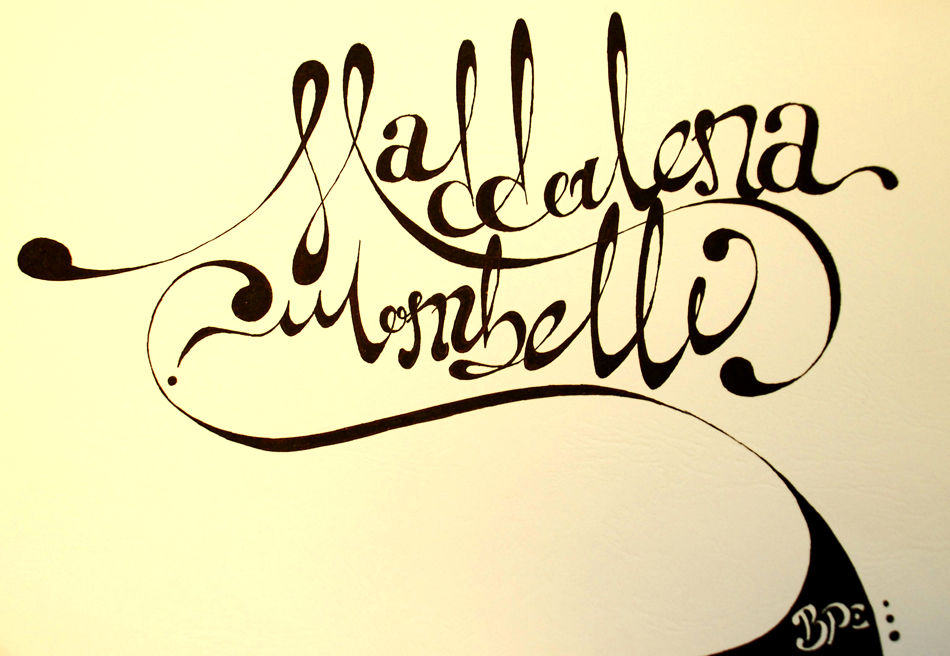 Maddalena
Mombelli
BPE